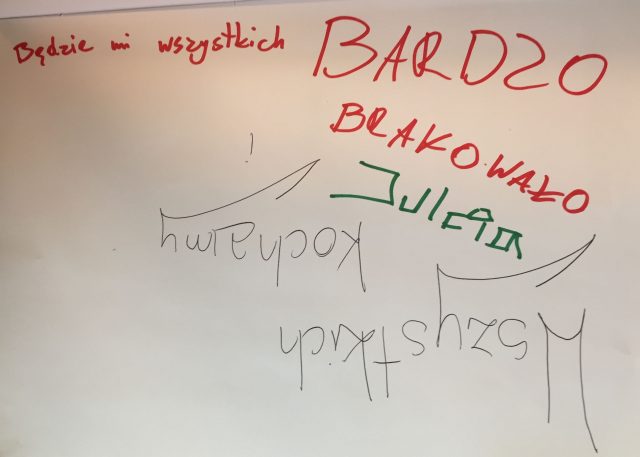 Będzie mi wszystkich BARDZO
BRAKOWAŁO
Julcia
Wszystkich
kochamy!